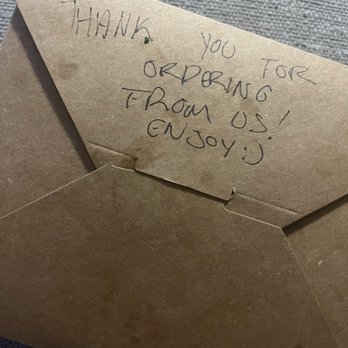 THANK YOU FOR
ORDERING
FROM US!
ENJOY:)